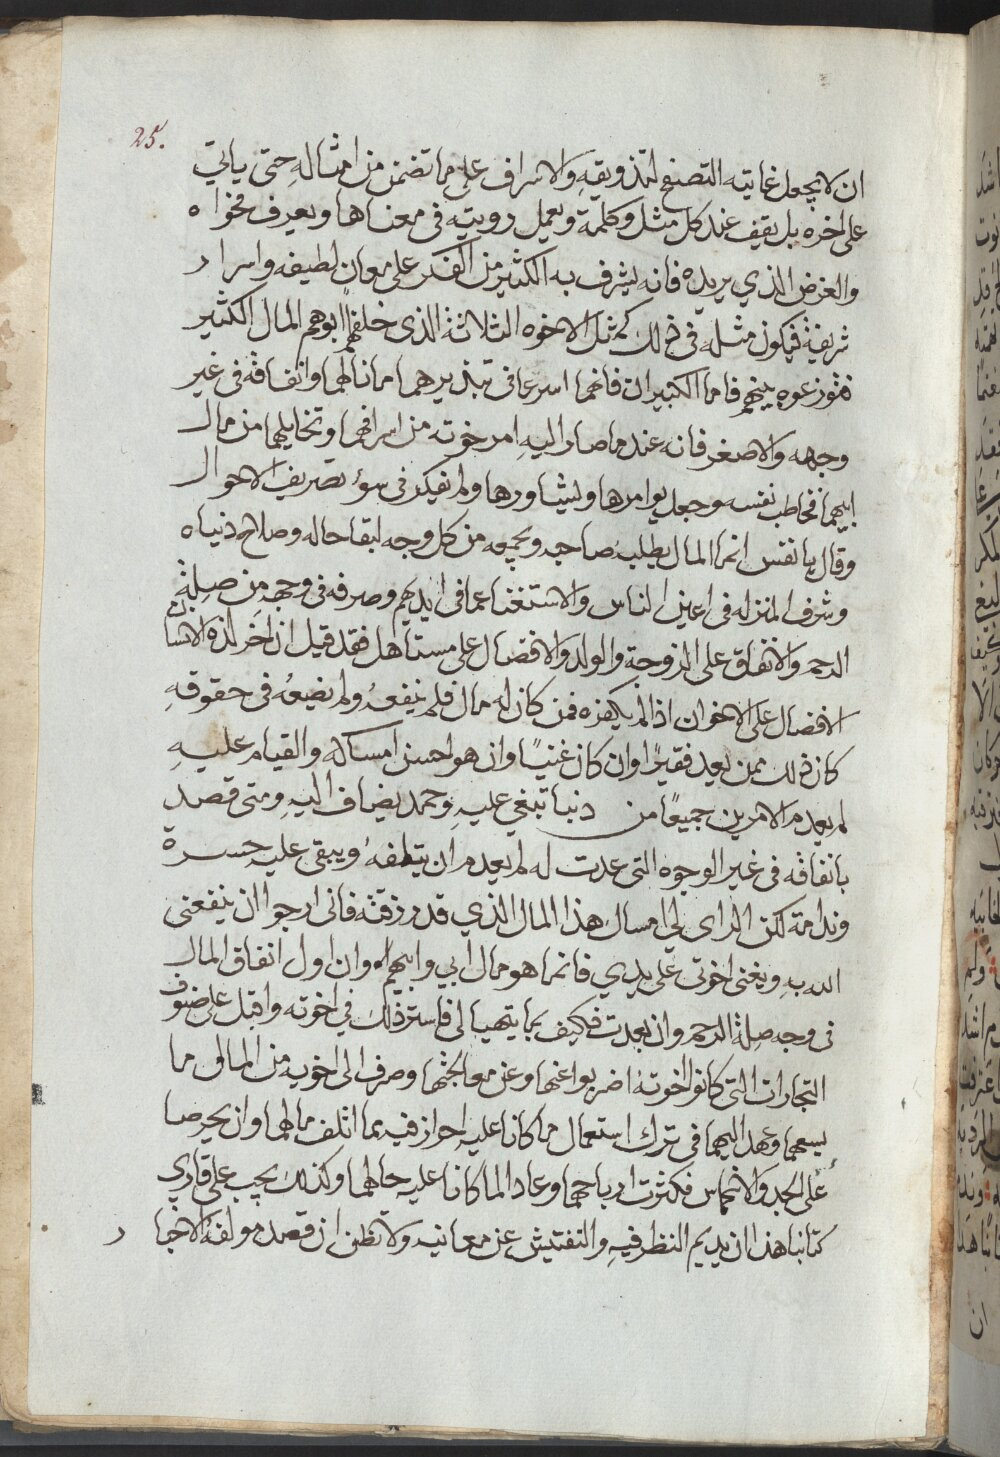 25.
ان لا يجعل غايته التصفح لتذويقه والاشراف على ما تضمن من امثاله حتى ياتي
على اخره بل يقف عند كل مثل وكلمة ويعمل رويته في معناها ويعرف فحواه
والغرض الذي يريده فانه يشرف به الكثير من الفكر على معان لطيفه واسرار
شريفة فيكون مثله في ذلك كمثل الاخوه الثلاثة الذى خلف لهم ابوهم المال الكثير
فتوزعوه بينهم فاما الكبيران فانهما اسرعا في تبذيرهما مما نالهما وانفاقه في غير
وجهه والاصغر فانه عند ما صار اليه امر خوته من اسرافهما وتخايلهما من مال
ابيهما فخاطب نفسه وجعل يوامرها ويشاورها ولم يفكر في سوء تصريف الاحوال
وقال يا نفس انما المال يطلبه صاحبه ويجمعه من كل وجه لبقا حاله وصلاح دنياه
وشرف المنزله في اعين الناس والاستغنا عما في ايديهم وصرفه في وجهه من صلة
الرحم والانفاق على الزوجة والولد والافضال على مستاهل فقد قيل ان اخر لذة الانسان
الافضال على الاخوان اذا لم يكفره فمن كان له مال فلم ينفعه ولم يضعه في حقوقه
كان ذلك ممن يعد فقيرًا وان كان غنيًا وان هو احسن امساكه والقيام عليه
لم يعدم الامرين جميعًا من دنيا تبغي عليه وحمد يضاف اليه ومتى قصد
بانفاقه في غير الوجوه التى عدت له لم يعدم ان يتلفه ويبقى عليه حسرة
وندامة لكن الراى لي امسال هذا المال الذي قد رزقته فانى ارجوا ان ينفعني
الله به ويغنى اخوتى على يدي فانما هو مال ابي وابيهم وان اول انفاق المال
في وجه صلة الرحم وان بعدت فكيف بما يتهيا لى فاستر ذلك في اخوته واقبل على صنوف
التجارات التى كانوا اخوته اضربوا عنها وعن معالجتها وصرف الى اخويه من المال ما
يسعهما وعهد اليهما في ترك استعمال ما كانا عليه احراز فيه بما اتلف مالهما وان يحرصا
على الجد والانتماس فكثرت ارباحهما وعادا لما كانا عليه حالهما وكذلك يجب على قاري
كتابنا هذا ان يديم النظر فيه والتفتيش عن معانيه ولا تظن ان قصد مولفه الاخبار